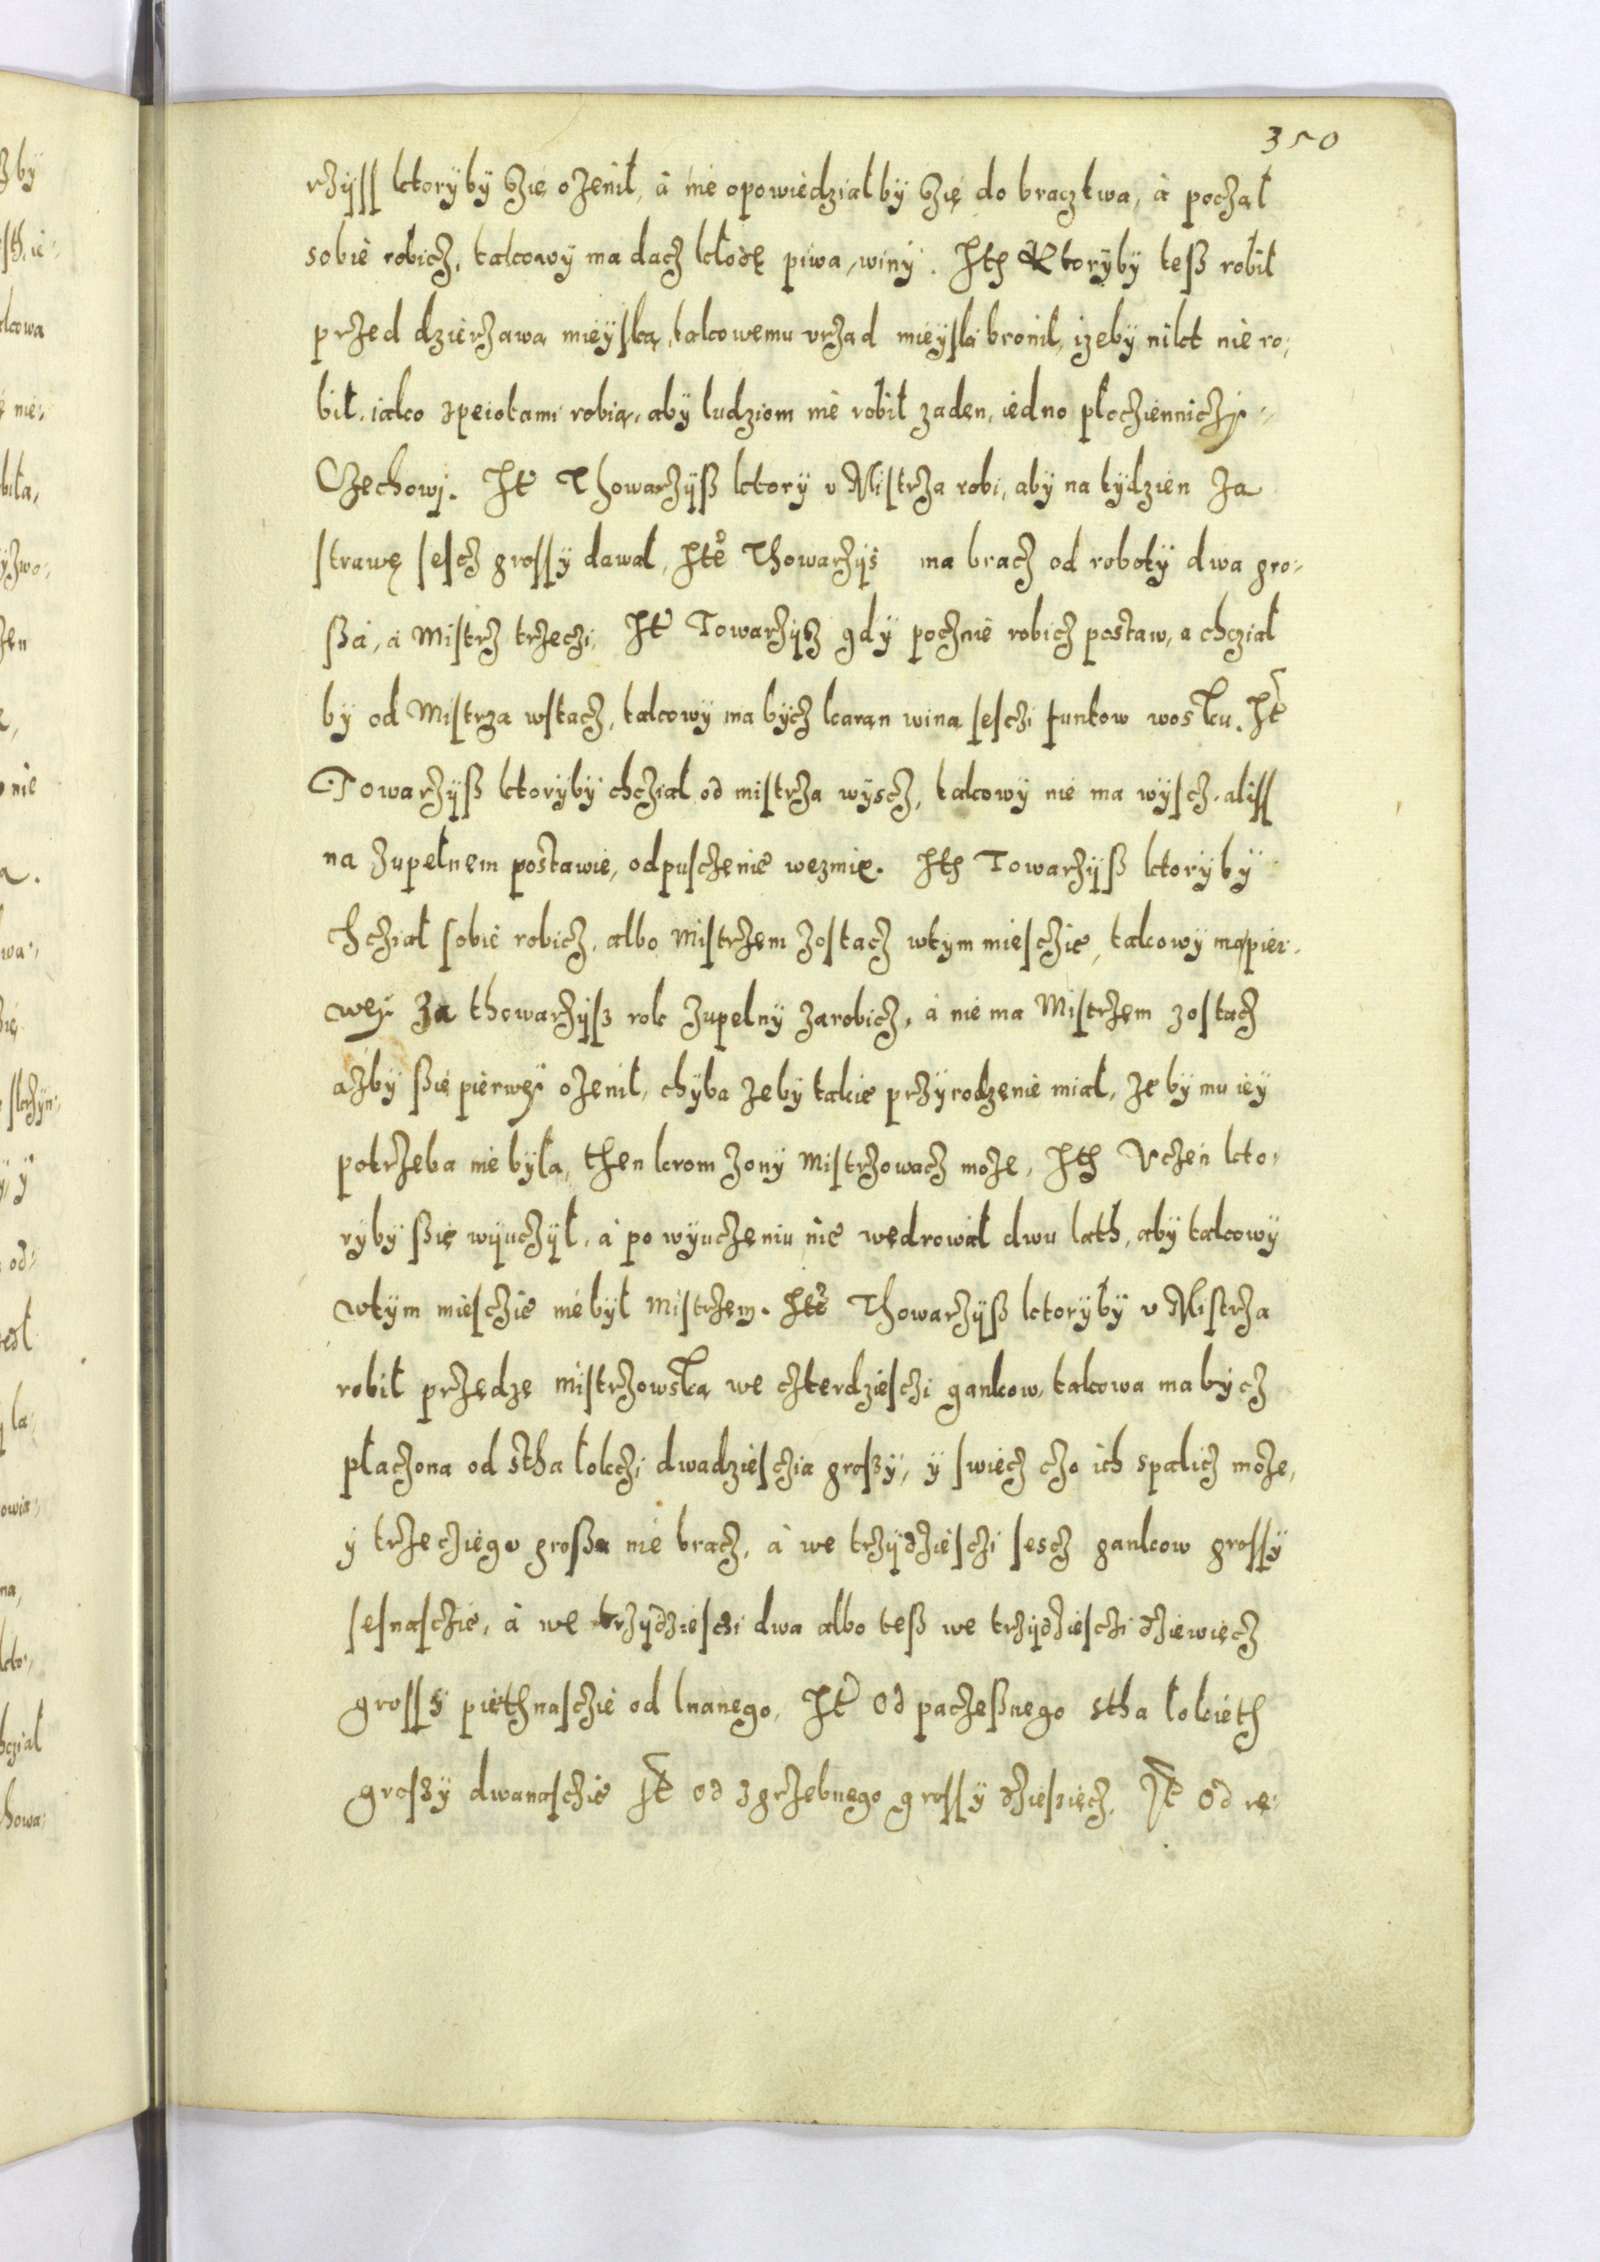 350
rzÿss ktorÿbÿ Szię ozenił, à nie opowiedziałbÿ Szię do braczkwa, à począł
sobie robicz, takowÿ ma dacz kłodę piwa, winÿ. Ith Ktorÿbÿ tesß robił
przed dzierzawą mieÿską, takowemu vrzad mieÿski bronił, izebÿ nikt nie ro⸗
bił. iako zpeiotami robią, abÿ ludziom nie robił zaden, iedno płocziennicżÿ
Czechowi. It Thowarzÿß ktorÿ v Mistrza robi, abÿ na tÿdzien Za
strawę sescz grossÿ dawał, Ite Thowarzÿs ma bracz od robotÿ dwa gro⸗
ßà, à Mistrz trzeczi. It Towarzÿsz gdÿ pocznie robicz postaw, a chcział
bÿ od Mistrza wstacz, takowÿ ma bÿcz karan wina sesczi funtow wosku. It
Towarzÿß ktorÿbÿ chcział od mistrza wÿscz, takowÿ nie ma wÿscz. aliss
na Zupełnem postawie, odpusczenie wezmie. Ith Towarzÿß ktorÿbÿ
chcział sobie robicz, albo Mistrzem Zostacz wtÿm miesczie, takowÿ ma pier⸗
weÿ Za thowarzÿsz rok Zupelnÿ Zarobicz, à nie ma Mistrzem zostacz
azbÿ ßię pierweÿ ozenił, chÿba zebÿ takie przÿrodzenie miał, ze bÿ mu ieÿ
potrzeba nie bÿła, then krom Zonÿ Mistrzowacz może, Ith Vczen kto⸗
rÿbÿ ßię wÿuczÿł, à po wÿuczeniu nie wędrował dwu lath, abÿ takowÿ
wtÿm miesczie nie bÿł Mistrzem. Ite Thowarzÿß ktorÿbÿ v Mistrza
robił przędzę Mistrzowską we czterdziesczi gankow, takowa ma bÿcz
płaczona od stha łokczi dwadziesczia großÿ, ÿ swiecz czo ich spalicz może,
ÿ trzecziego großa nie bracz, à we trzÿdziesczi sescz gankow grossÿ
sesnasczie, à we trzÿdziesczi dwa albo teß we trzÿdziesczi dziewięcz
grossÿ piethnasczie od lnanego, It Od paczeßnego stha łokieth
großÿ dwanasczie It Od zgrzebnego grossÿ dziesięcz, It Od rę⸗